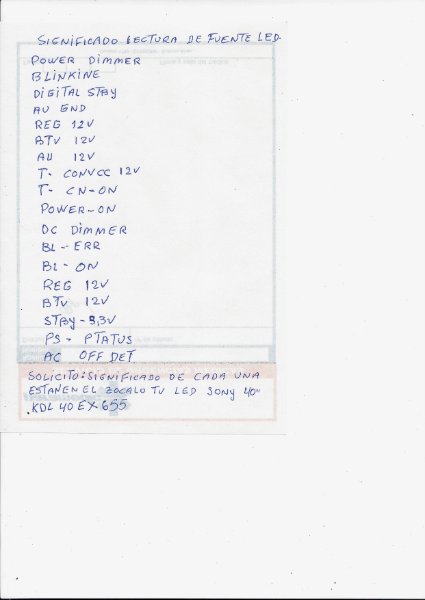 SIGNIFICADO LECTURA DE FUENTE LED.
POWER DIMMER
BLINKINE
DIGITAL STBY
AU GND
REG 12V
BTV 12V
AU 12V
T- CONVCC 12V
T- CN-ON
POWER-ON
DC DIMMER
BL-ERR
BL-ON
REG 12V
BTV 12V
STBY-3,3V
PS- PTATUS
AC OFF DET
SOLICITO:SIGNIFICADO DE CADA UNA
ESTAN EN EL ZOCALO TV LED SONY 40"
KDL 40 EX 655